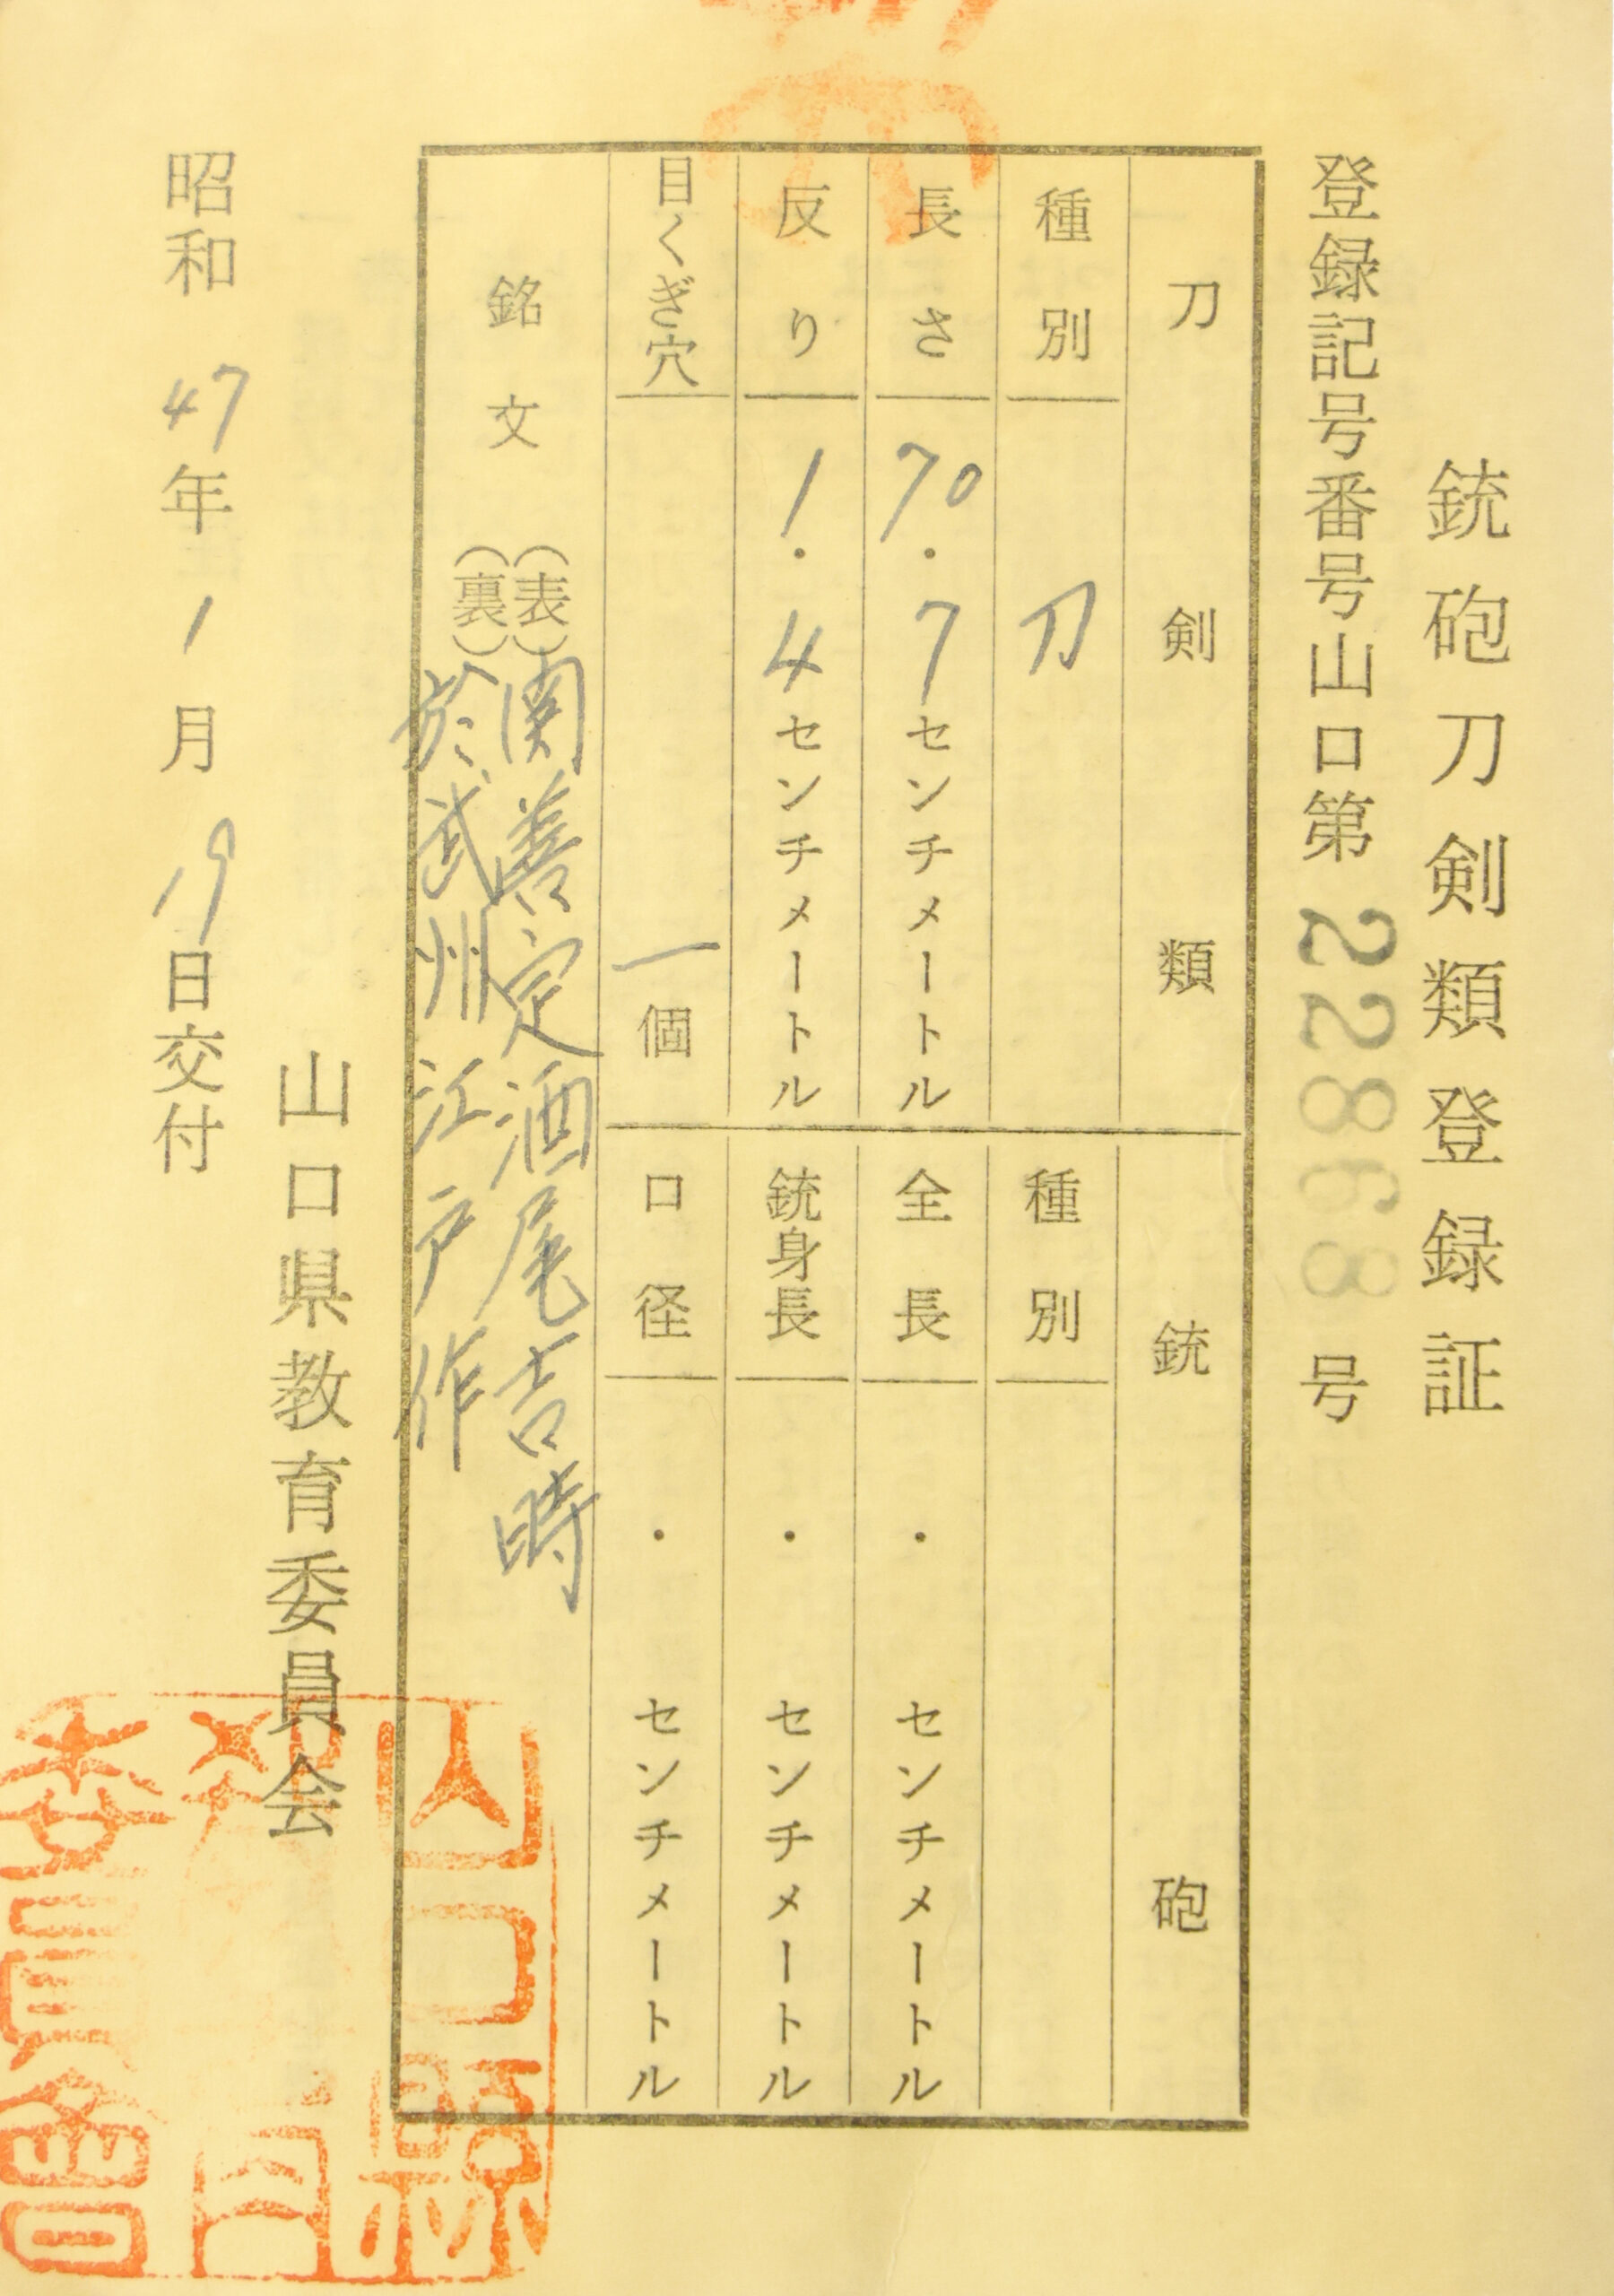 銃砲刀剣類登録証
登録記号番号山口第22868号
刀剣類
種別 刀
長さ 70.7センチメートル
反り 1.4センチメートル
目くぎ穴 一個
銃砲
種別
全長 ・ センチメートル
銃身長 ・ センチメートル
口径 ・ センチメートル
銘文
(表)関善定酒尾吉時
(裏)於武州江戸作
山口県教育委員会
昭和47年1月19日交付